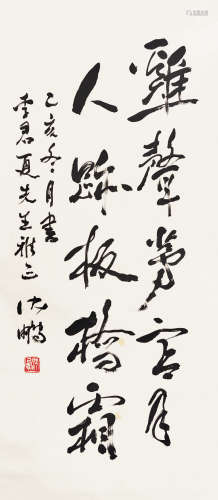 雞聲茅店月
人跡板橋霜
乙亥冬月書
李君夏先生雅正
沈鵬